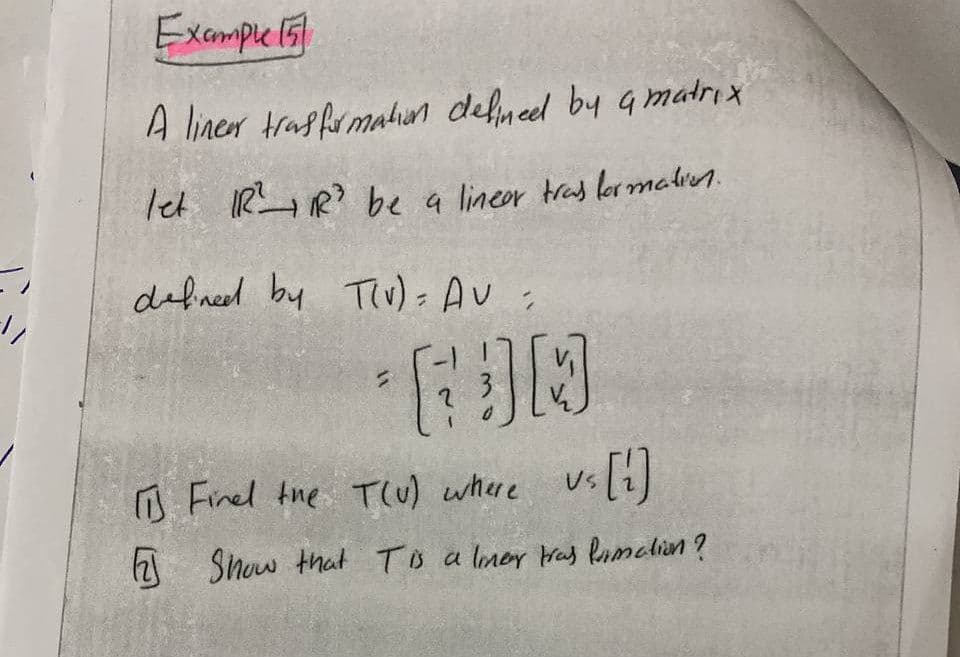 Example [5]
A linear trasformation defined by a matrix
let R² → R³ be a linear trasformation.
defined by T(v) = Av =
= [-1 1
2 3
1 0] [v₁
v₂]
[1] Find the T(v) where v = [1
2]
[2] Show that T is a linear trasformation?